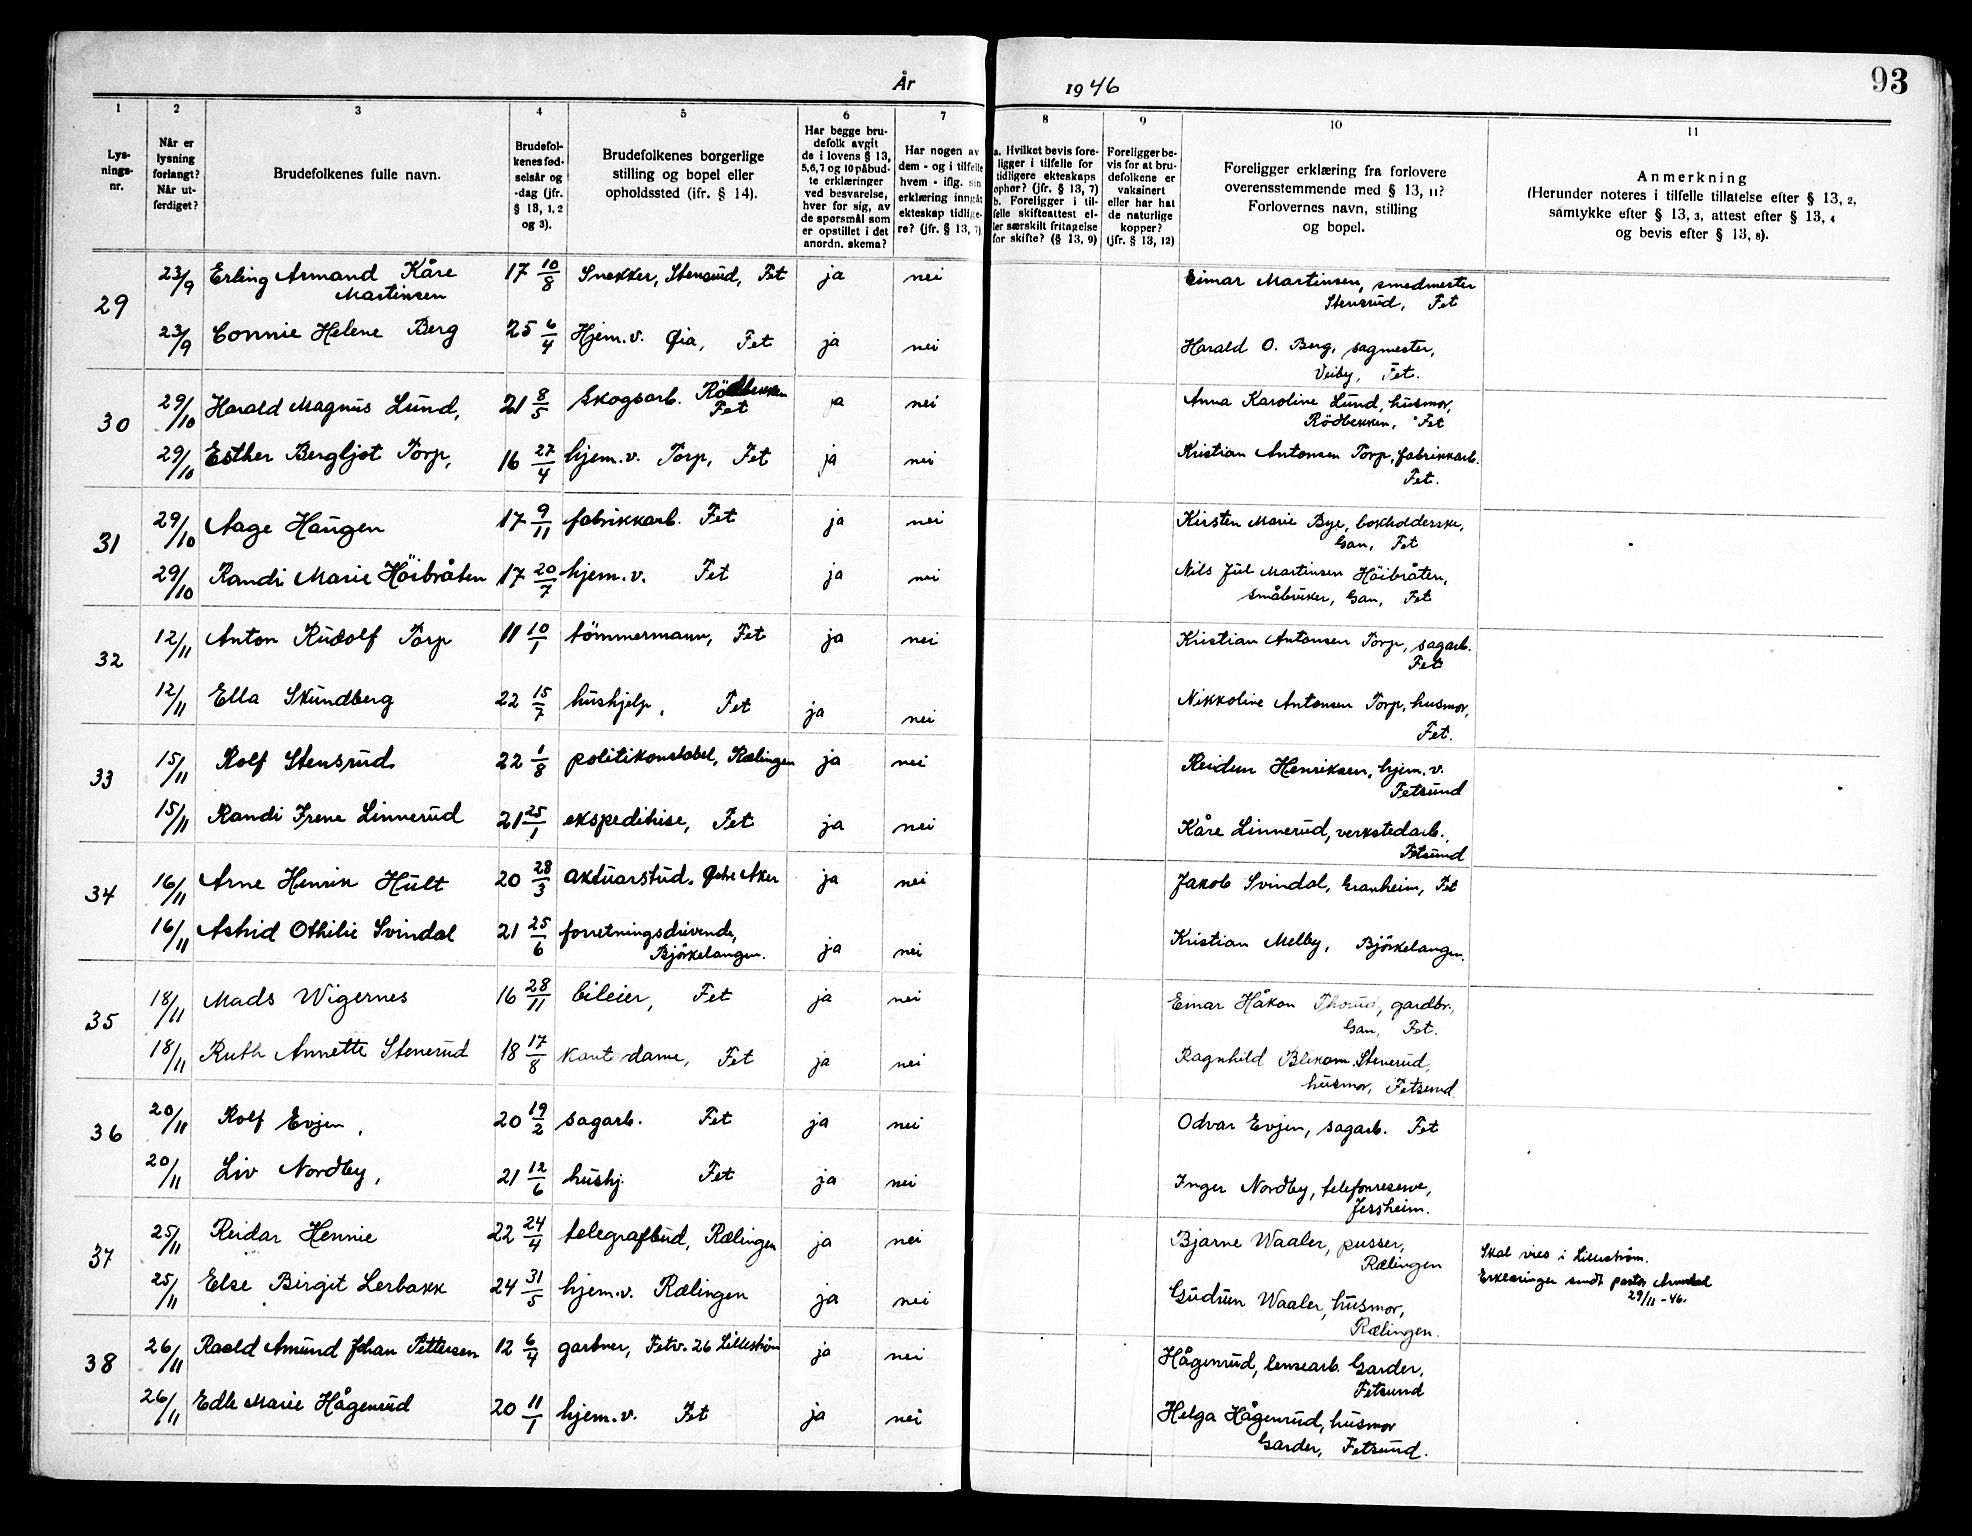 År 1946 93
1 2 3 4 5 6 7 8 9 10 11
Lys-
nings-
nr.
Når er
lysning
forlangt?
Når ut-
ferdiget?
Brudefolkenes fulle navn.
Brudefol-
kenes fød-
selsår og
-dag (jfr.
§ 13, 1, 2
og 3).
Brudefolkenes borgerlige
stilling og bopel eller
opholdssted (ifr. § 14).
Har begge bru-
defolk avgit
de i lovens § 13,
5, 6, 7 og 10 påbud-
te erklæringer
ved besvarelse,
hver for sig, av
de spørsmål som
er opstillet i det
anordn. skema?
Har nogen av
dem - og i tilfelle
hvem - iflg. sin
erklæring inngåt
ekteskap tidlige-
re? (jfr. § 13, 7).
a. Hvilket bevis fore-
ligger i tilfelle for
tidligere ekteskaps
ophør? (jfr. § 13, 7)
b. Foreligger i til-
felle skifteattest el-
ler særskilt fritagelse
for skifte? (§ 13, 9)
Foreligger be-
vis for at bru-
defolkene er
vaksinert
eller har hat
de naturlige
kopper?
(jfr. § 13, 12)
Foreligger erklæring fra forlovere
overensstemmende med § 13, 11?
Forlovernes navn, stilling
og bopel.
Anmerkning
(Herunder noteres i tilfelle tillatelse efter § 13, 2,
samtykke efter § 13, 3, attest efter § 13, 4
og bevis efter § 13, 8).
29 23/9 Erling Armand Kåre 17 10/8 Snekker, Stensrud, Fet ja nei Eimar Martinsen, smedmester
Martinsen Stensrud, Fet
23/9 Connie Helene Berg 25 6/4 Hjem.v. Øia, Fet ja nei Harald O. Berg, sagmester,
Veiby, Fet.
30 29/10 Harald Magnus Lund, 21 8/5 Skogsarb. Rödbekken ja nei Anna Karoline Lund, husmor,
Fet Rödbekken, Fet
29/10 Esther Bergljot Torp, 16 27/4 hjem.v. Torp, Fet ja nei Kristian Antonsen Torp, fabrikkarb.
Fet.
31 29/10 Aage Haugen 17 9/11 fabrikkarb. Fet ja nei Kirsten Marie Bye, bokholderske,
Gan, Fet
29/10 Randi Marie Höibråten 17 20/7 hjem.v. Fet ja nei Nils Jul Martinsen Höibråten,
småbruker, Gan, Fet
32 12/11 Anton Rudolf Torp 11 10/1 tömmermann, Fet ja nei Kristian Antonsen Torp, sagarb.
Fet
12/11 Ella Skundberg 22 15/7 hushjelp, Fet ja nei Nikkoline Antonsen Torp, husmor,
Fet.
33 15/11 Rolf Stensrud 22 1/8 politikonstabel, Rælingen ja nei Reidun Henriksen, hjem.v.
Fetsund
15/11 Randi Irene Linnerud 21 25/1 ekspeditrise, Fet ja nei Kåre Linnerud, verkstedarb.
Fetsund
34 16/11 Arne Henrik Hult 20 28/3 aktuarstud. Aker ja nei Jakob Svindal, Granheim, Fet
16/11 Astrid Othilie Svindal 21 25/6 forretningsdrivende, ja nei Kristian Melby, Björkelangen.
Björkelangen.
35 18/11 Mads Wigernes 16 28/11 bileier, Fet ja nei Einar Håkon Thorud, gardbr.,
Gan, Fet.
18/11 Ruth Annette Stenerud 18 17/8 kontordame, Fet ja nei Ragnhild Stenerud,
husmor, Fetsund
36 20/11 Rolf Evjen, 20 19/2 sagarb. Fet ja nei Odvar Evjen, sagarb. Fet
20/11 Liv Nordby, 21 12/6 hushj. Fet ja nei Inger Nordby, telefonreserve,
Jessheim.
37 25/11 Reidar Hennie 22 24/4 telegrafbud, Rælingen ja nei Bjarne Waaler, pusser, Skal vies i Lilleström.
Rælingen Erklæringer sendt pastor
25/11 Else Birgit Lerbakk 24 31/5 hjem.v. Rælingen ja nei Gudrun Waaler, husmor, 29/11-46.
Rælingen.
38 26/11 Roald Amund Johan Pettersen 12 6/4 gartner, Fetv. 26 Lilleström ja nei Hågenrud, lensearb. Garder,
Fetsund
26/11 Edle Marie Hågenrud 20 11/1 hjem.v. Fet ja nei Helga Hågenrud, husmor
Garder, Fetsund.